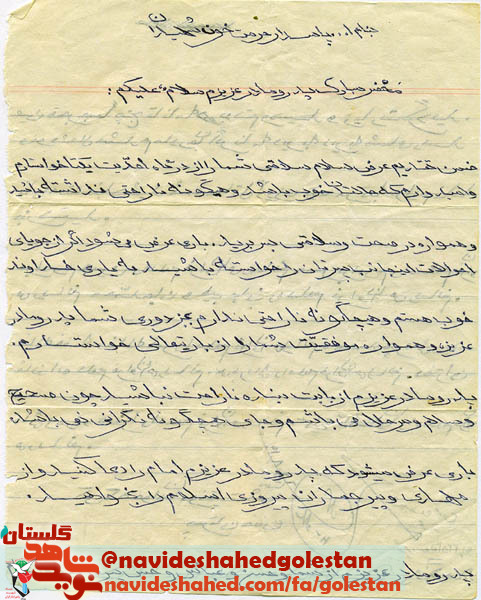 بنام الله پاسدار حرمت خون شهیدان
محضر مبارک پدر و مادر عزیزم سلام علیکم:
ضمن تقدیم عرض سلام سلامتی شما را از درگاه احدیت یکتا خواستارم
و امیدوارم که حالتان خوب باشد و هیچگونه ناراحتی نداشته باشید
و همواره در صحت و سلامتی بسر برید. باری عرض می شود اگر از جویای
احوالات اینجانب پسرتان را خواسته باشید به یاری خداوند
خوب هستم و هیچگونه ناراحتی ندارم بجز دوری شما پدر و مادر
عزیزم و همواره موفقیت شما را از باریتعالی خواستارم.
پدر و مادر عزیزم از بابت بنده ناراحت نباشید چون صحیح
و سالم و سرحال می باشیم و جای هیچگونه نگرانی نمی باشد.
باری عرض میشود که پدر و مادر عزیزم امام را دعا کنید و از
پیروزی اسلام را بخواهید.
پدر و مادر عزیزم از
گلستان
نوید شاهد
@navideshahedgolestan
navideshahed.com/fa/golestan